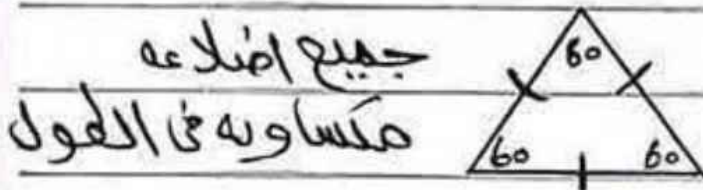 جميع اضلاعه
متساويه في الطول
60
60 60